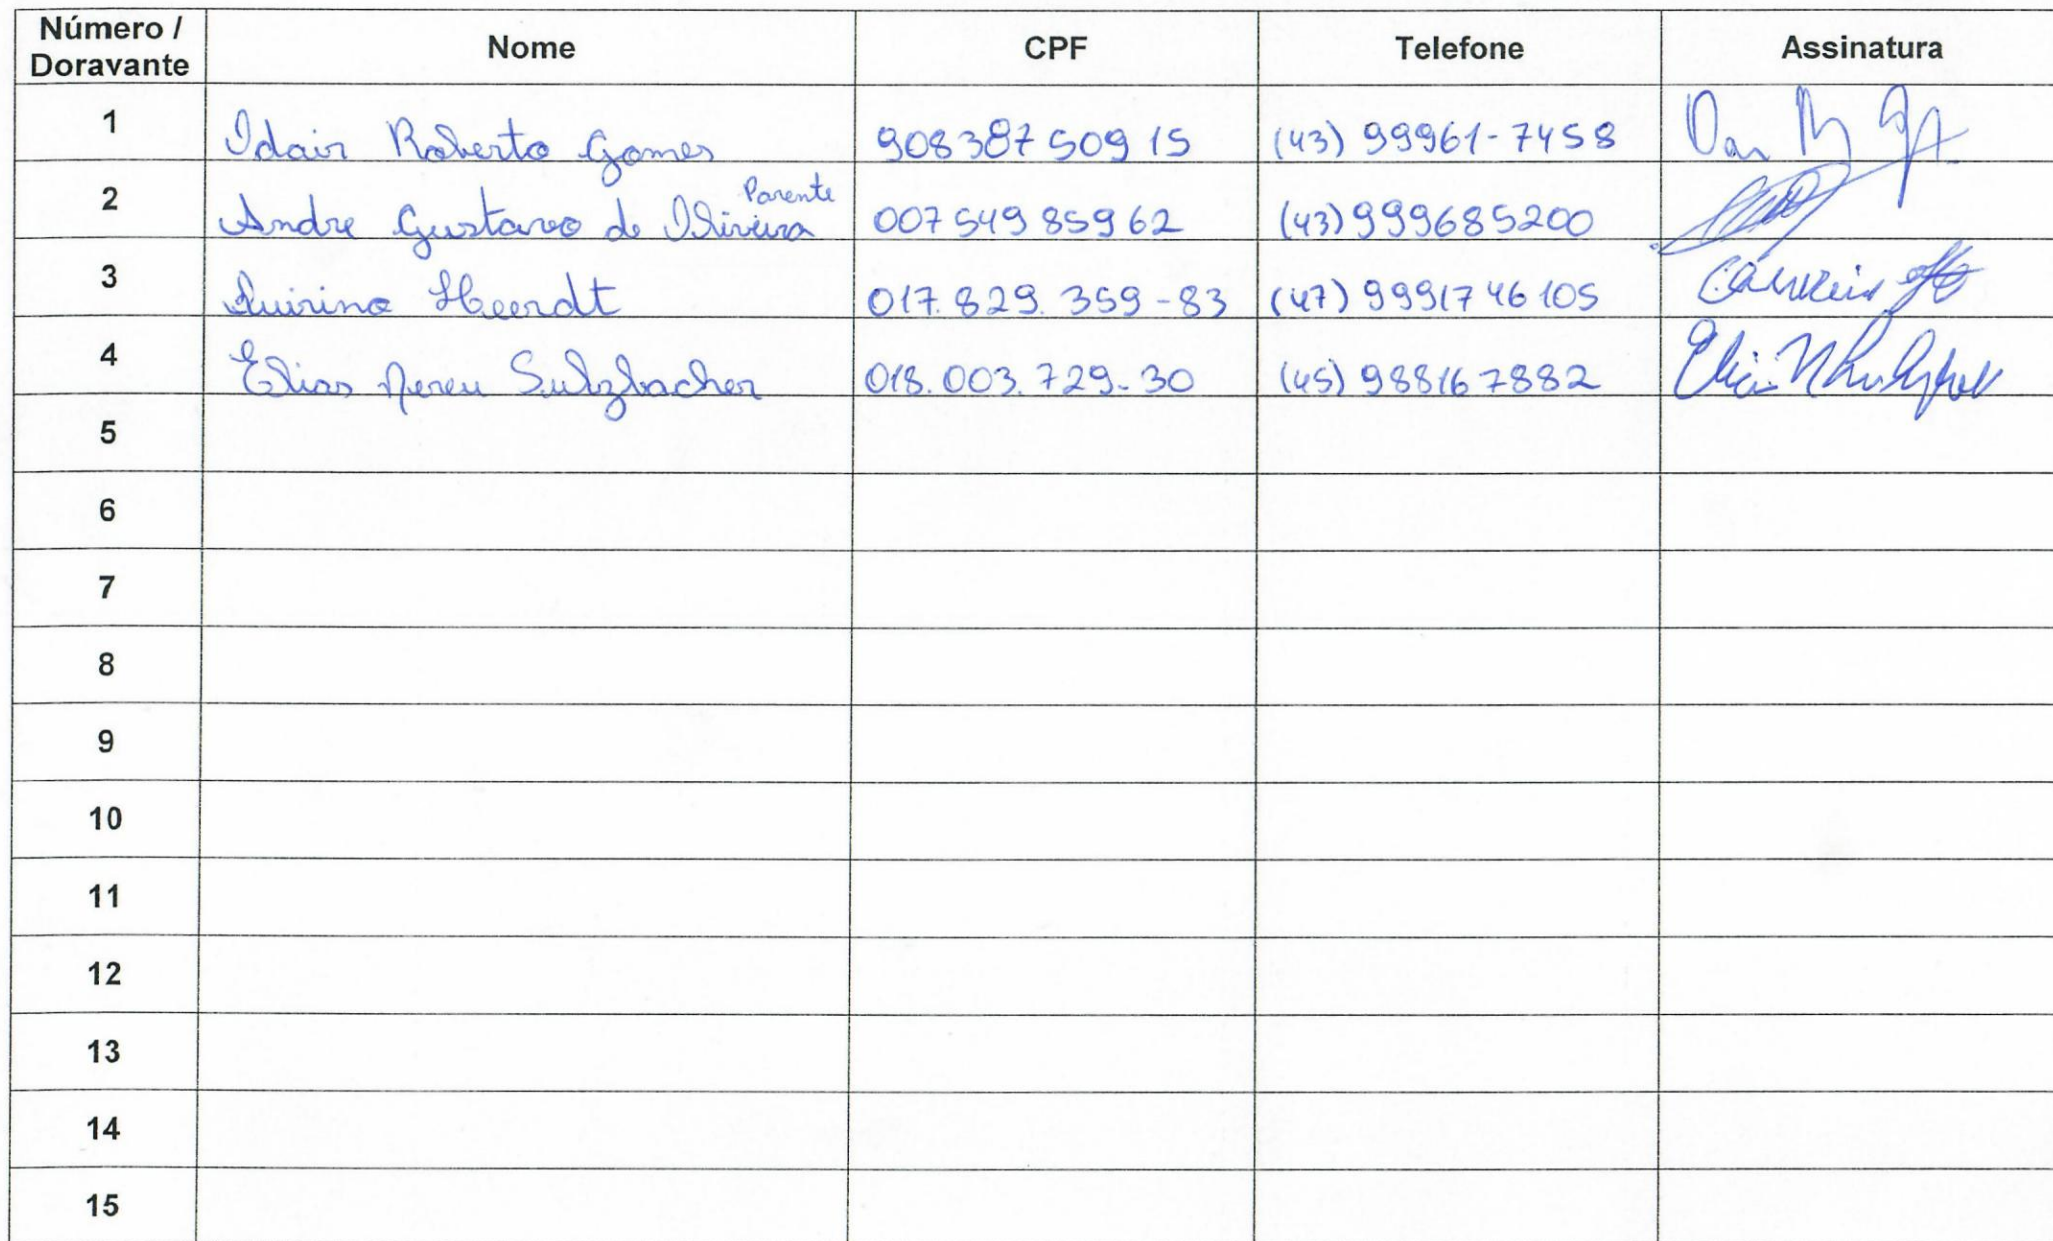 Número / Doravante Nome CPF Telefone Assinatura
1 Idair Roberto Gomes 908387 509 15 (43) 99961-7458
2 Andre Gustavo de Oliveira Parente 007 549 859 62 (43) 999685200
3 Quirino Heerdt 017.829.359-83 (47) 999174 6105
4 Elias Nereu Sulzbacher 018.003.729-30 (45) 988167882
5
6
7
8
9
10
11
12
13
14
15